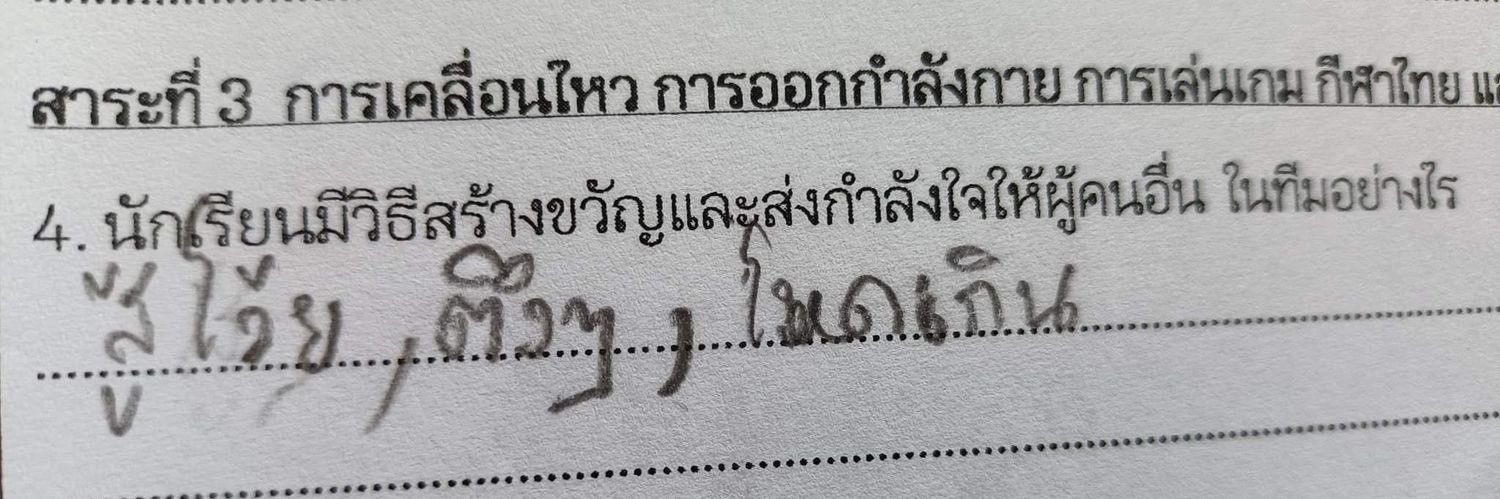 สาระที่ 3 การเคลื่อนไหว การออกกำลังกาย การเล่นเกม กีฬาไทย แล
4. นักเรียนมีวิธีสร้างขวัญและส่งกำลังใจให้ผู้คนอื่น ในทีมอย่างไร
สู้ไว้ย , ตึงๆ , โหดเกิน